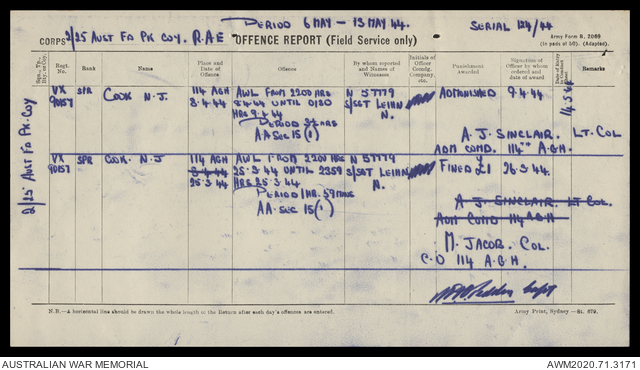 PERIOD 6 MAY - 13 MAY 44. SERIAL 124/44
CORPS 2/25 AUST FD PK COY. R.A.E OFFENCE REPORT (Field Service only)
Army Form B. 2069
(In pads of 50). (Adapted).
Regt. No. Rank Name Place and Date of Offence Offence By whom reported and Names of Witnesses Initials of Officer Comdg. Company etc. Punishment Awarded Signature of Officer by whom ordered and date of award Date of Entry in Conduct Sheet Remarks
2/25 AUST FD PK COY
VX SPR COOK N.J. 114 AGH AWL FROM 2200 HRS N 57779 ADMONISHED 9.4.44 14.5.44
90157 8.4.44 8.4.44 UNTIL 0130 S/SGT LEIHN
HRS 9.4.44 N.
PERIOD 3½ HRS
AA SEC 15(1)
A.J. SINCLAIR. LT. COL
ADM COMD. 114TH A.G.H.
VX SPR COOK. N.J 114 AGH AWL FROM 2200 HRS N 57779 FINED £1 26.3.44
90157 8.4.44 25.3.44 UNTIL 2359 S/SGT LEIHN
25.3.44 HRS 25.3.44 N.
PERIOD 1 HR. 59 MINS
AA. SEC 15(1)
A.J. SINCLAIR LT COL.
ADM COMD 114 A.G.H
M. JACOB. COL.
C.O 114 A.G.H.
Capt
N.B.—A horizontal line should be drawn the whole length of the Return after each day's offences are entered.
Army Print, Sydney—St. 679.
AUSTRALIAN WAR MEMORIAL AWM2020.71.3171